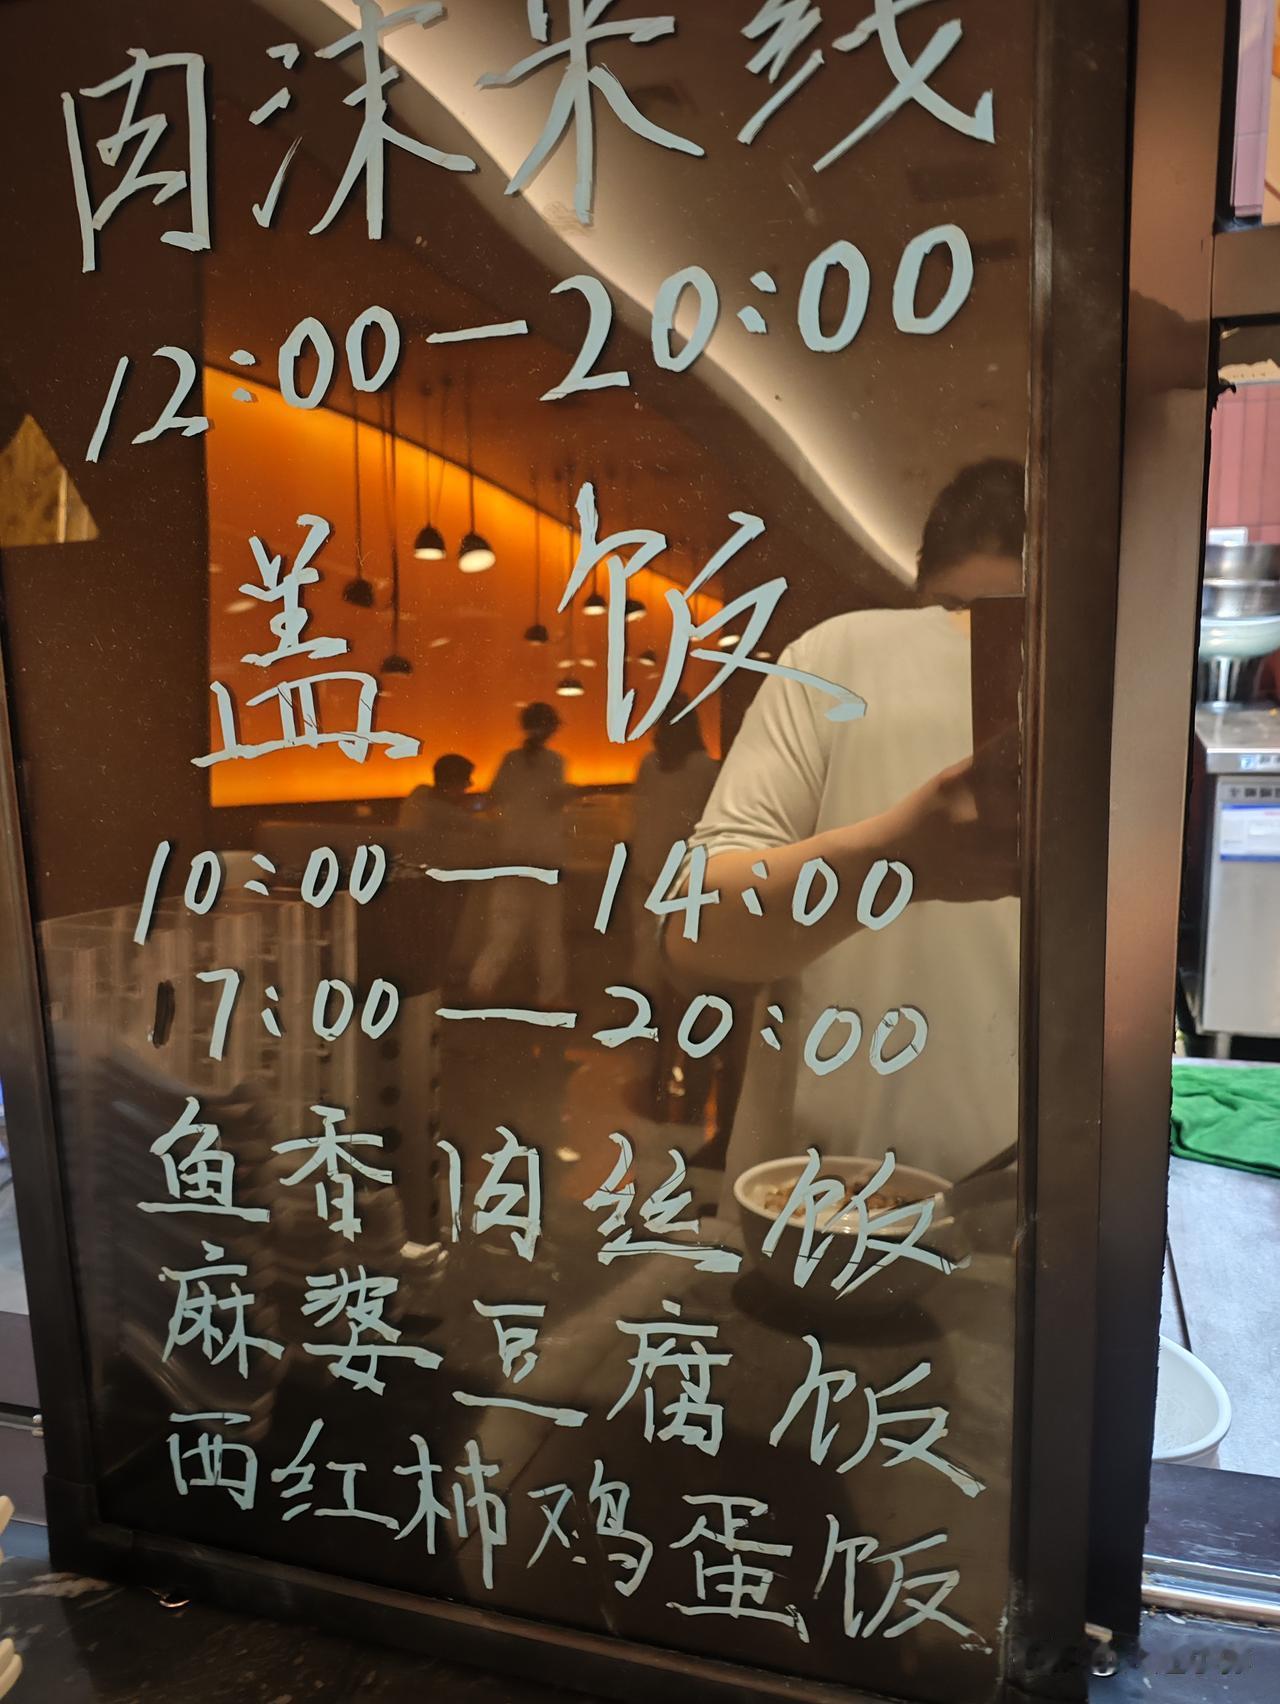 肉沫米线
12:00—20:00
盖饭
10:00—14:00
17:00—20:00
鱼香肉丝饭
麻婆豆腐饭
西红柿鸡蛋饭